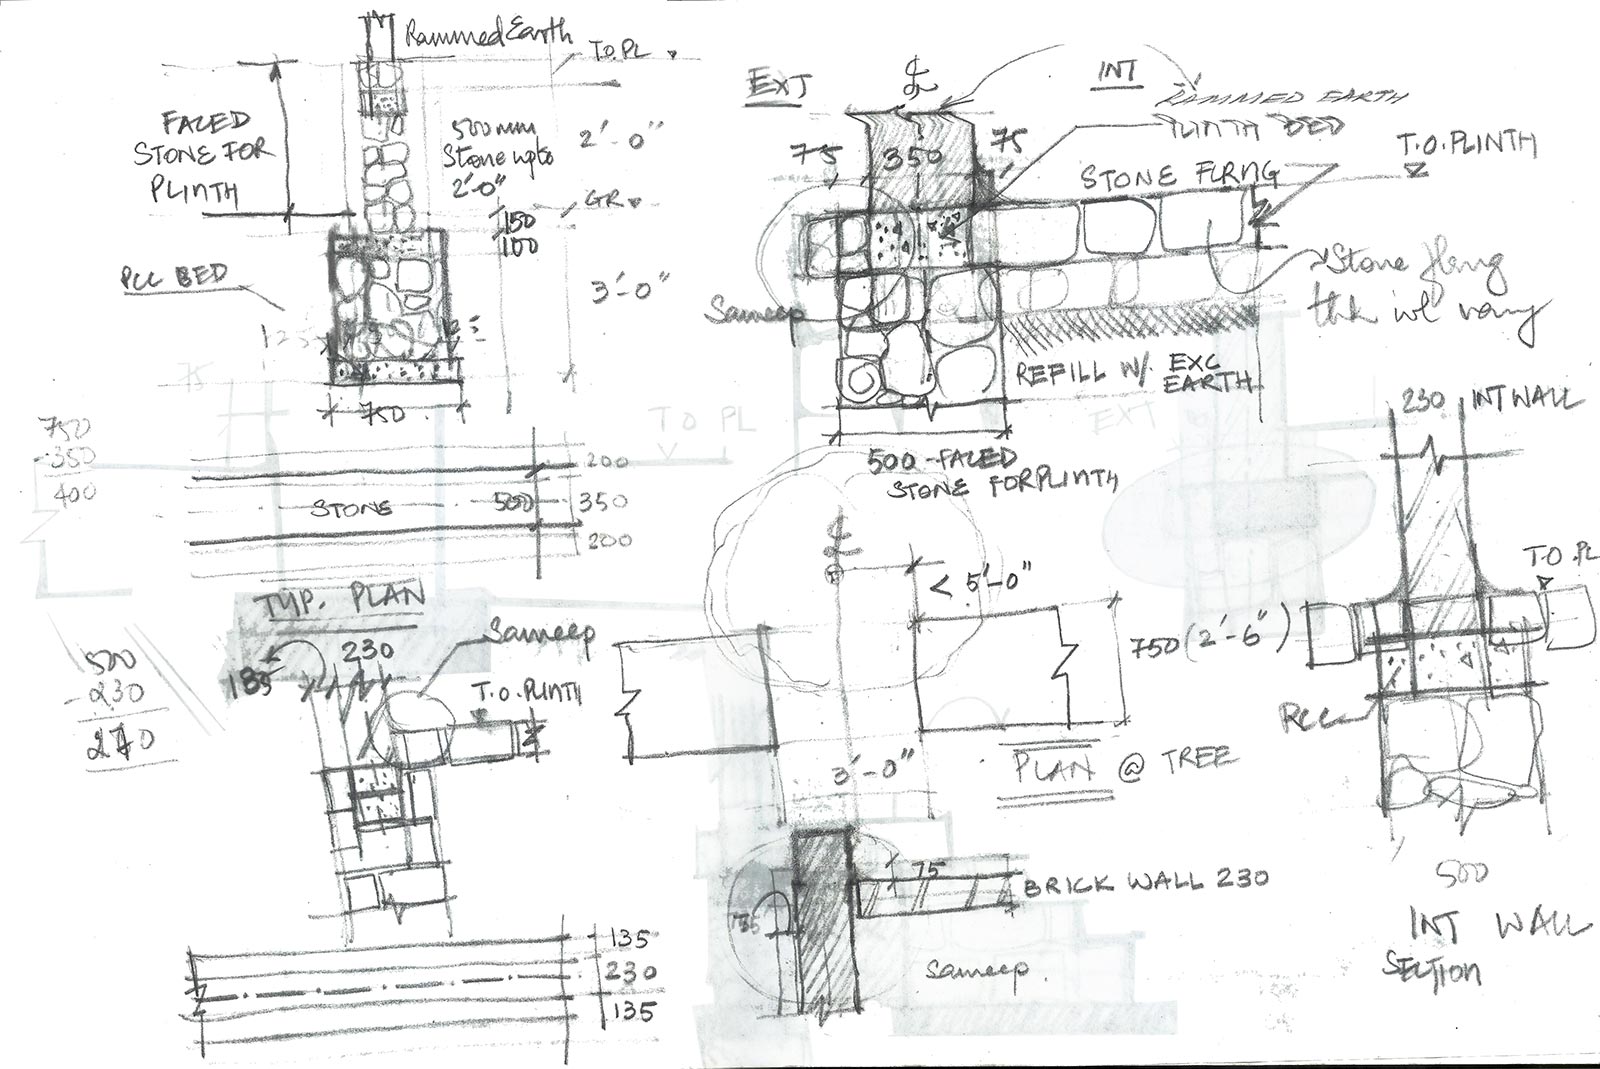 Rammed Earth
T.O.PL
FACED
STONE FOR
PLINTH
500mm
Stone upto
2'-0"
2'-0"
GR
150
100
PCC BED
3'-0"
125
75
750
750
-350
400
200
STONE
500
350
200
TYP. PLAN
EXT
INT
RAMMED EARTH
PLINTH BED
75
350
75
T.O.PLINTH
STONE FLRNG
Stone flrng
thk wl vary
Sameep
REFILL W/ EXC
EARTH
500-FACED
STONE FOR PLINTH
TO PL
EXT
230 INT WALL
T.O.PL
< 5'-0"
750 (2'-6")
RCC
3'-0"
PLAN @ TREE
500
INT WALL
SECTION
500
-230
270
Sameep
185
230
T.O.PLINTH
135
230
135
75
BRICK WALL 230
135
Sameep.